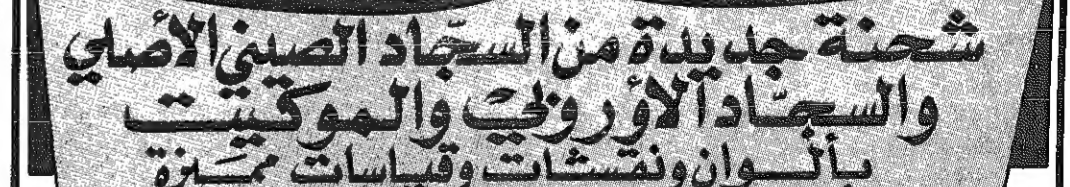 شحنة جديدة من السجّاد الصيني الأصلي
والسجّاد الأوروبيّ والموكيت
بألوان ونقشات وقياسات مميّزة